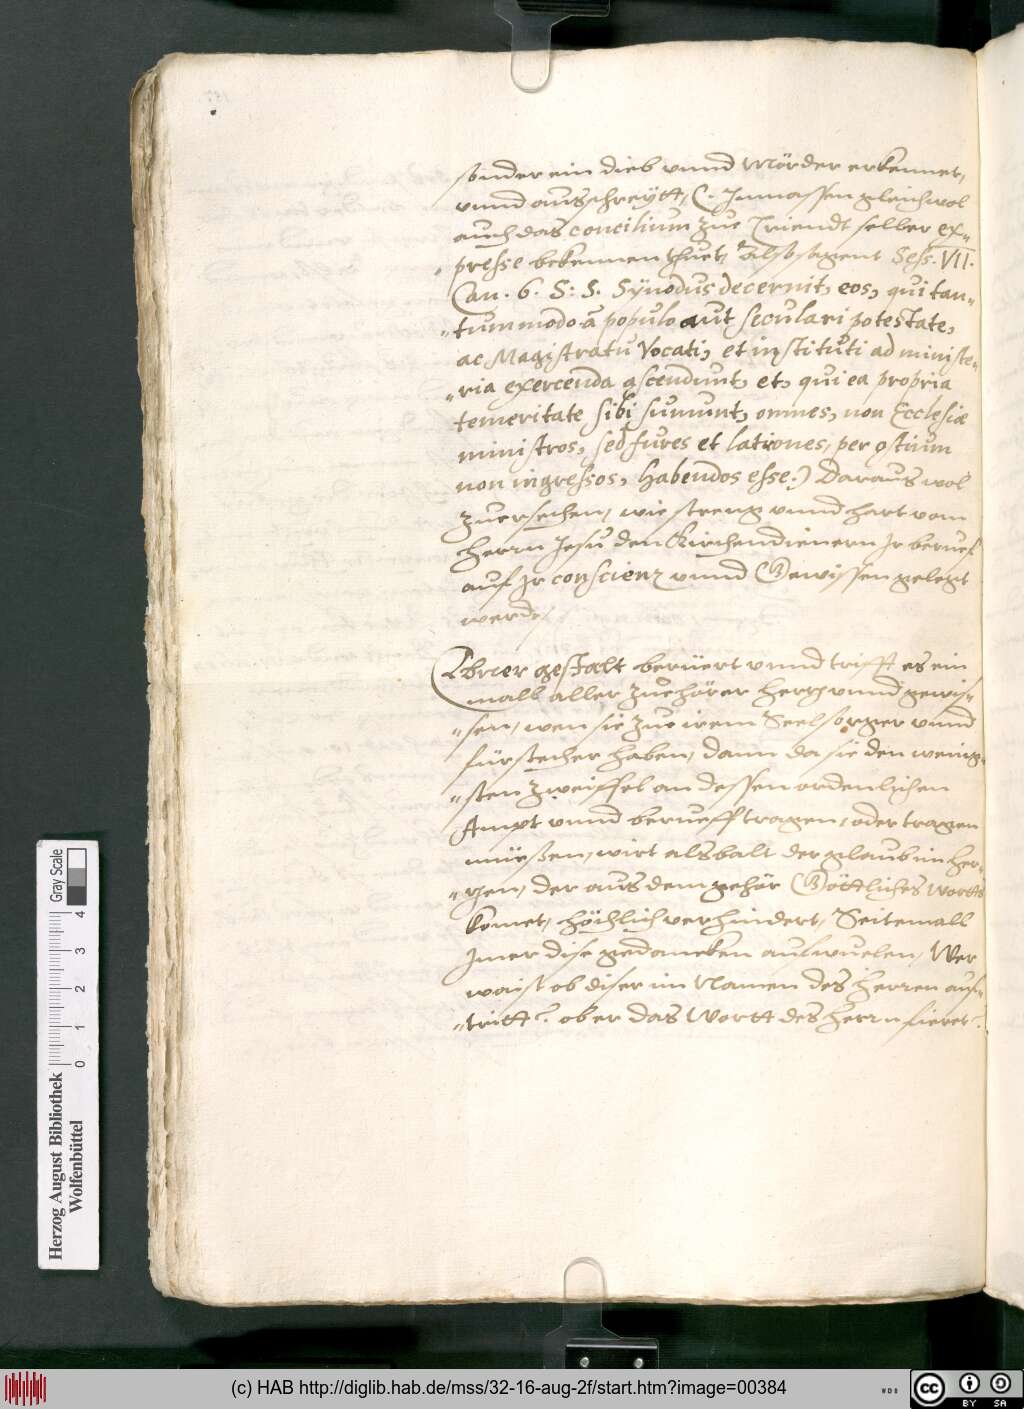 sonder ein dieb vnnd Mörder erkennet,
vnnd ausschreytt, (. Inmassen gleichwol
auch das concilium zue Triendt selber ex-
presse bekennen thuet, Also sagent Sess. VII.
Can. 6. S: S. Sÿnodus decernit, eos, qui tan-
-tummodo à populo aut seculari potestate,
ac Magistratu Vocati, et instituti ad ministe-
-ria exercenda ascendunt, et, qui ea propria
temeritate sibi sumunt, omnes, non Ecclesiæ
ministros, sed fures et latrones, per ostium
non ingressos, habendos esse.) Daraus wol
zuersechen, wie streng vnnd hart vom
Herrn Jesu den Kirchendienern Jr beruef
auf Jr conscienz vnnd Gewissen gelegt
werde,
gestalt berüert vnnd trifft es ein
mall aller Zuehörer Herz vnnd gewis-
-sen, wen sie zue irem Seelsorger vnnd
fürstecher haben, dann da sie den wenig-
-sten zweiffel an dessen ordenlichen
Ampt vnnd berueff tragen, oder tragen
müeßen, wirt alsbalt der glaub im Her-
-zen, der aus dem gehör Göttliches Wortts
komet, höchlich verhindert, Seitemall
Jmer dise gedancken aufwuelen, Wer
waist ob diser im Namen des Herren auf-
-tritt? ob er das Wortt des Herrn fieret?
Herzog August Bibliothek
Wolfenbüttel
Gray Scale
0 1 2 3 4
(c) HAB http://diglib.hab.de/mss/32-16-aug-2f/start.htm?image=00384
WDB
cc BY SA